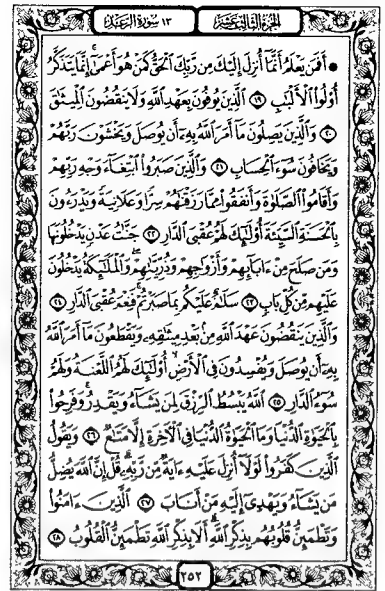 الجزء الثالث عشر
١٣ سورة الرعد
۞ أَفَمَن يَعْلَمُ أَنَّمَا أُنزِلَ إِلَيْكَ مِن رَّبِّكَ ٱلْحَقُّ كَمَنْ هُوَ أَعْمَىٰٓ ۚ إِنَّمَا يَتَذَكَّرُ
أُو۟لُوا۟ ٱلْأَلْبَٰبِ ١٩ ٱلَّذِينَ يُوفُونَ بِعَهْدِ ٱللَّهِ وَلَا يَنقُضُونَ ٱلْمِيثَٰقَ
٢٠ وَٱلَّذِينَ يَصِلُونَ مَآ أَمَرَ ٱللَّهُ بِهِۦٓ أَن يُوصَلَ وَيَخْشَوْنَ رَبَّهُمْ
وَيَخَافُونَ سُوٓءَ ٱلْحِسَابِ ٢١ وَٱلَّذِينَ صَبَرُوا۟ ٱبْتِغَآءَ وَجْهِ رَبِّهِمْ
وَأَقَامُوا۟ ٱلصَّلَوٰةَ وَأَنفَقُوا۟ مِمَّا رَزَقْنَٰهُمْ سِرًّا وَعَلَانِيَةً وَيَدْرَءُونَ
بِٱلْحَسَنَةِ ٱلسَّيِّئَةَ أُو۟لَٰٓئِكَ لَهُمْ عُقْبَى ٱلدَّارِ ٢٢ جَنَّٰتُ عَدْنٍ يَدْخُلُونَهَا
وَمَن صَلَحَ مِنْ ءَابَآئِهِمْ وَأَزْوَٰجِهِمْ وَذُرِّيَّٰتِهِمْ ۖ وَٱلْمَلَٰٓئِكَةُ يَدْخُلُونَ
عَلَيْهِم مِّن كُلِّ بَابٍ ٢٣ سَلَٰمٌ عَلَيْكُم بِمَا صَبَرْتُمْ ۚ فَنِعْمَ عُقْبَى ٱلدَّارِ ٢٤
وَٱلَّذِينَ يَنقُضُونَ عَهْدَ ٱللَّهِ مِنۢ بَعْدِ مِيثَٰقِهِۦ وَيَقْطَعُونَ مَآ أَمَرَ ٱللَّهُ
بِهِۦٓ أَن يُوصَلَ وَيُفْسِدُونَ فِى ٱلْأَرْضِ ۙ أُو۟لَٰٓئِكَ لَهُمُ ٱللَّعْنَةُ وَلَهُمْ
سُوٓءُ ٱلدَّارِ ٢٥ ٱللَّهُ يَبْسُطُ ٱلرِّزْقَ لِمَن يَشَآءُ وَيَقْدِرُ ۚ وَفَرِحُوا۟
بِٱلْحَيَوٰةِ ٱلدُّنْيَا وَمَا ٱلْحَيَوٰةُ ٱلدُّنْيَا فِى ٱلْءَاخِرَةِ إِلَّا مَتَٰعٌ ٢٦ وَيَقُولُ
ٱلَّذِينَ كَفَرُوا۟ لَوْلَآ أُنزِلَ عَلَيْهِ ءَايَةٌ مِّن رَّبِّهِۦ ۗ قُلْ إِنَّ ٱللَّهَ يُضِلُّ
مَن يَشَآءُ وَيَهْدِىٓ إِلَيْهِ مَنْ أَنَابَ ٢٧ ٱلَّذِينَ ءَامَنُوا۟
وَتَطْمَئِنُّ قُلُوبُهُم بِذِكْرِ ٱللَّهِ ۗ أَلَا بِذِكْرِ ٱللَّهِ تَطْمَئِنُّ ٱلْقُلُوبُ ٢٨
٢٥٢